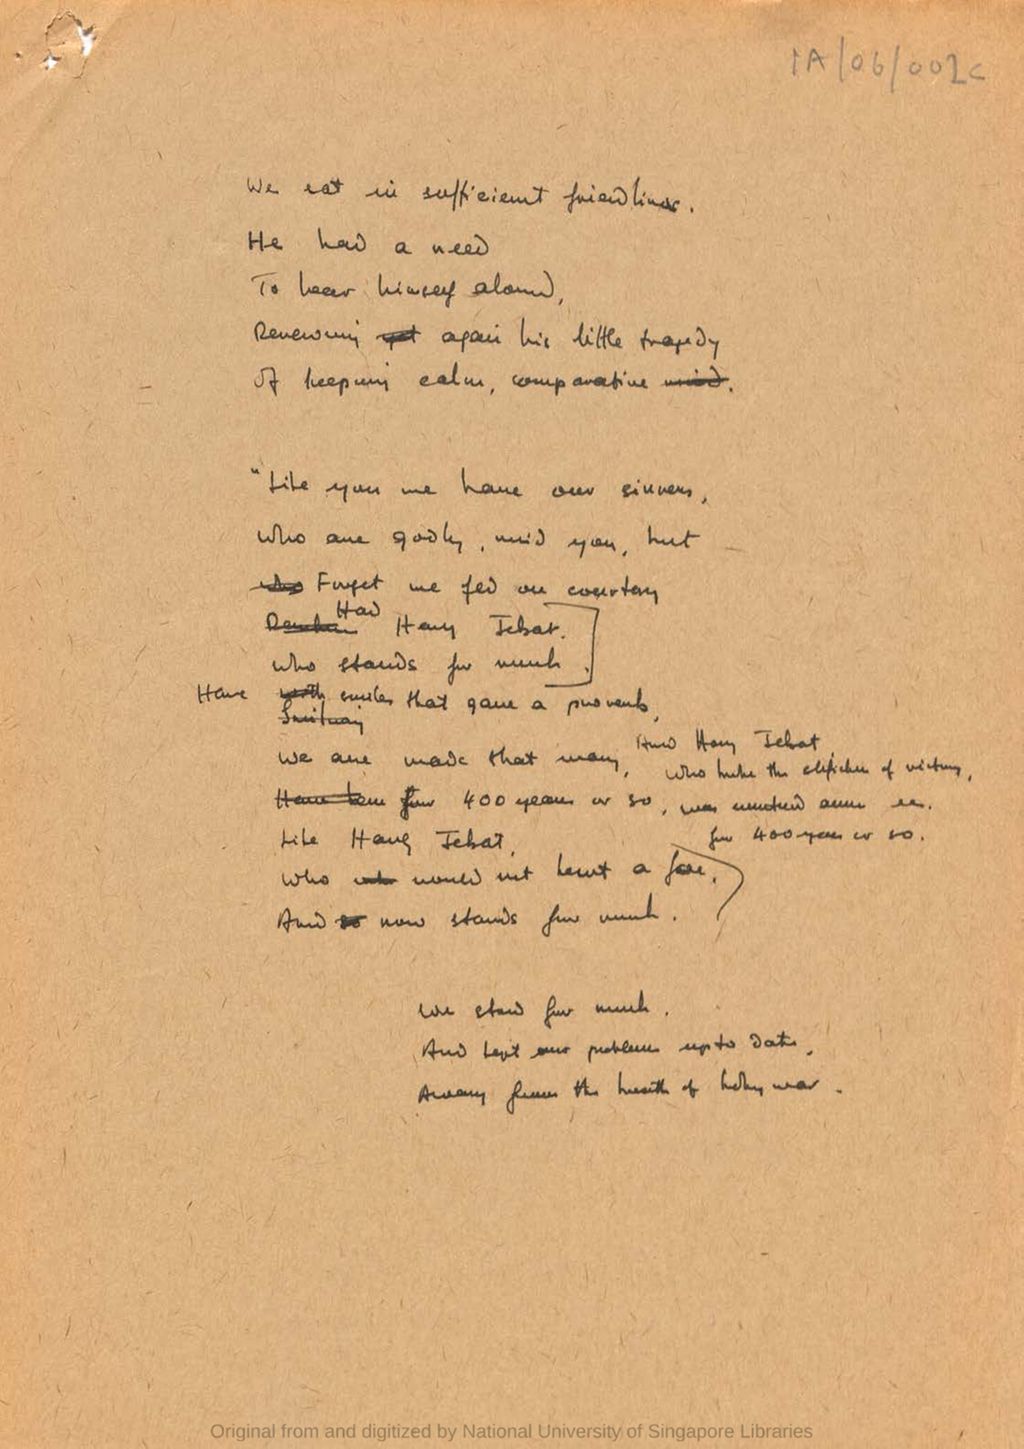 1A/06/002c
We sat in sufficient friendliness.
He had a need
To hear himself aloud,
Renewing yet again his little tragedy
Of keeping calm, comparative mind.
"Like you we have our sinners,
Who are godly, mind you, but
who Forget we fed on courtesy
Had
Hang Jebat.
Who stands for much.
Have with smiles that gave a proverb,
We are made that many,
And Hang Jebat
Who broke the of victory,
Have been for 400 years or so,
was
for 400 years or so.
Like Hang Jebat,
Who would not hurt a foe,
And so now stands for much.
We stand for much.
And kept our problems up to date,
Away from the breath of holy war.
Original from and digitized by National University of Singapore Libraries